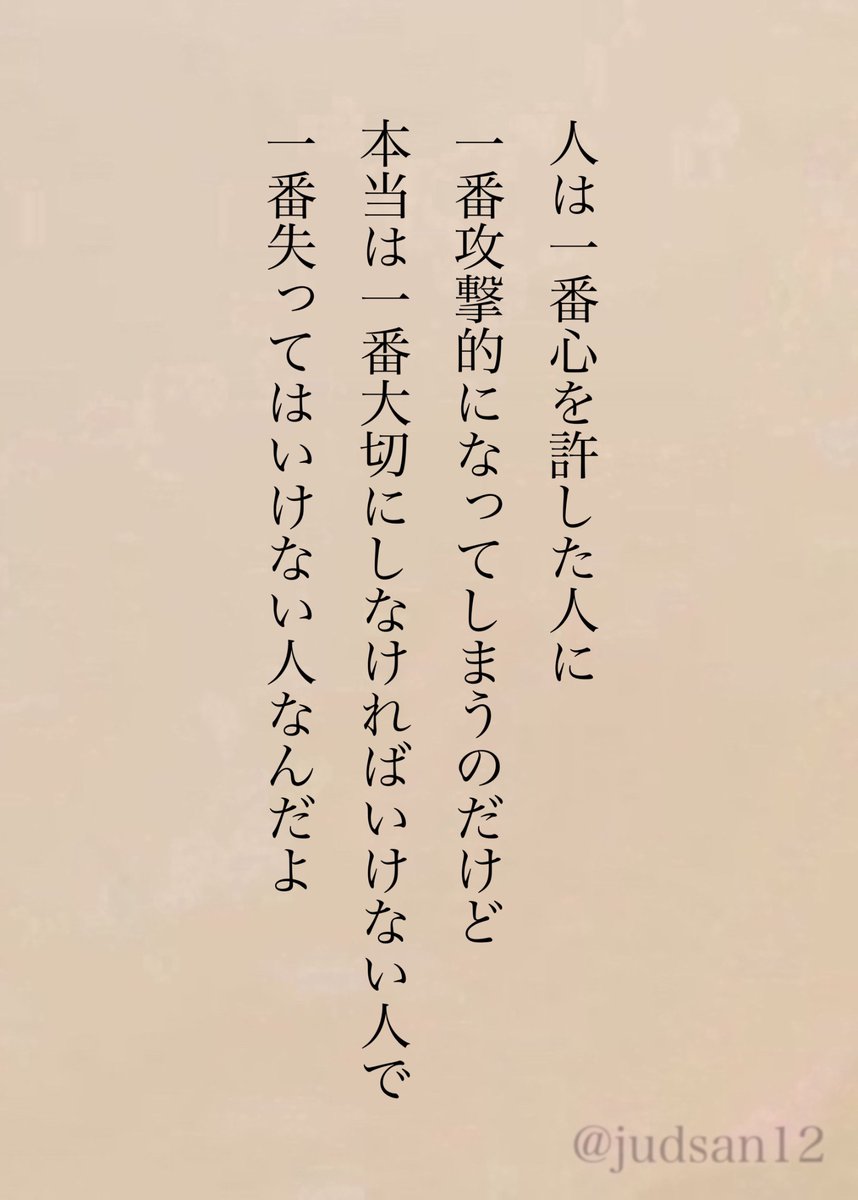 人は一番心を許した人に
一番攻撃的になってしまうのだけど
本当は一番大切にしなければいけない人で
一番失ってはいけない人なんだよ
@judsan12